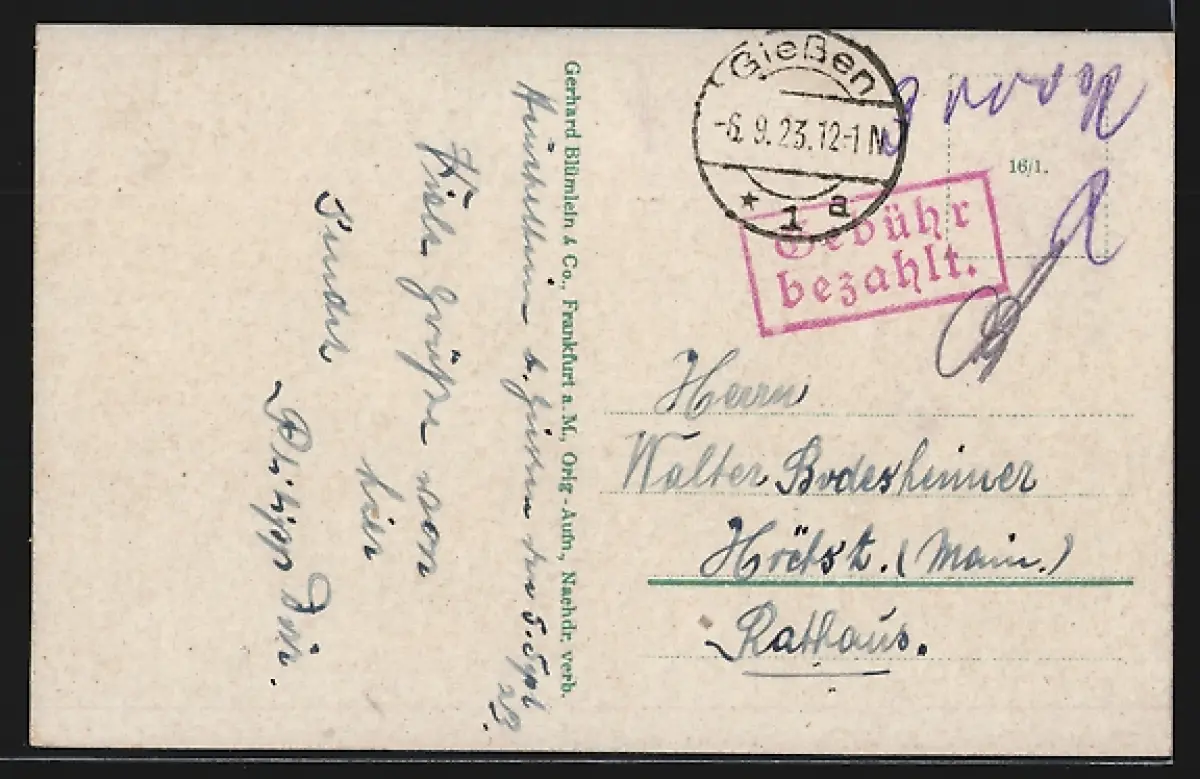 Gießen
-6.9.23.12-1 N
* 1 a
Gebühr
bezahlt.
16/1.
Herrn
Walter Bodesheimer
Höchst. (Main.)
Rathaus.
Gerhard Blümlein & Co., Frankfurt a. M., Orig-Aufn., Nachdr. verb.
b. Giessen den 5. Sept
23.
Viele Grüsse von
hier
sendet
Philipp